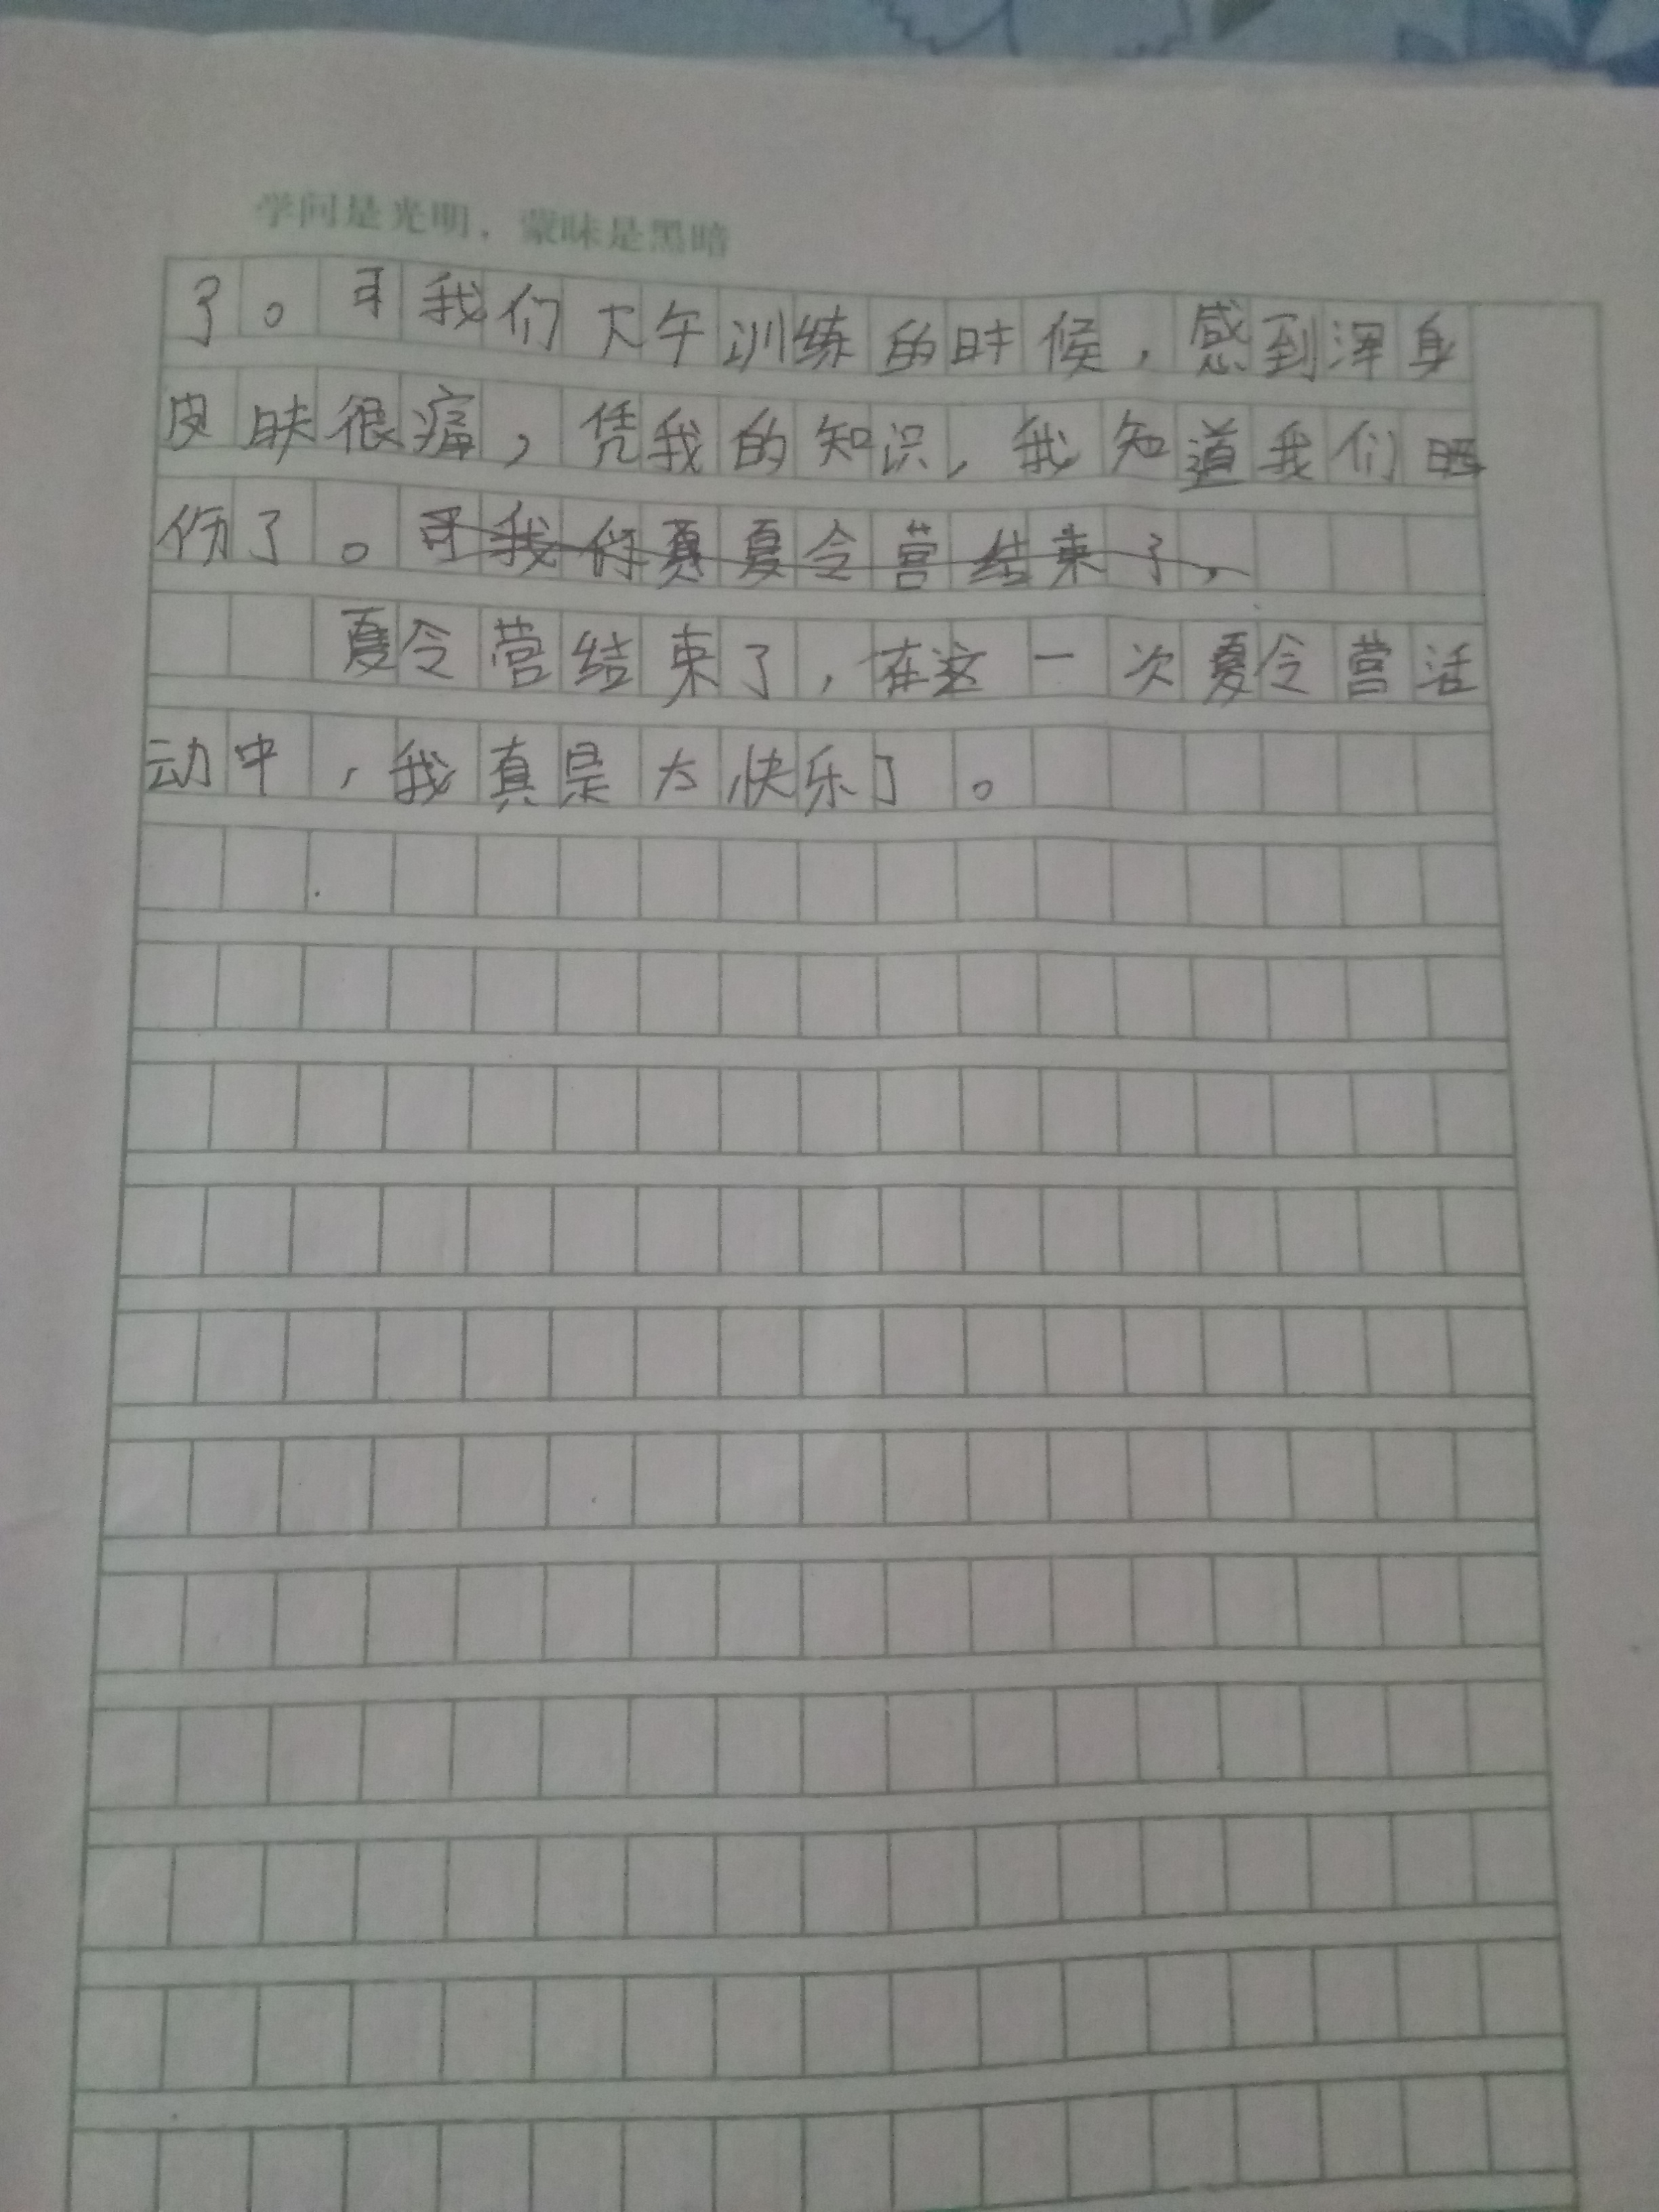 学问是光明，蒙昧是黑暗
了。我们下午训练的时候，感到浑身
皮肤很痛，凭我的知识，我知道我们晒
伤了。我们夏夏令营结束了，
夏令营结束了，在这一次夏令营活
动中，我真是太快乐了。